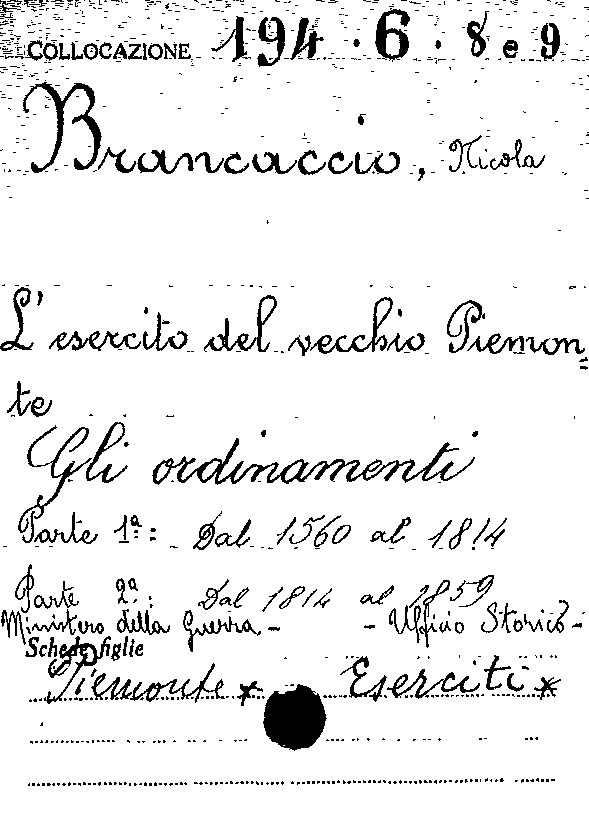 COLLOCAZIONE 194 · 6 · 8 e 9
Brancaccio, Nicola
L'esercito del vecchio Piemon=
te
Gli ordinamenti
Parte 1ª: Dal 1560 al 1814
Parte 2ª: Dal 1814 al 1859
Ministero della Guerra - - Ufficio Storico -
Schede figlie
Piemonte * Eserciti *